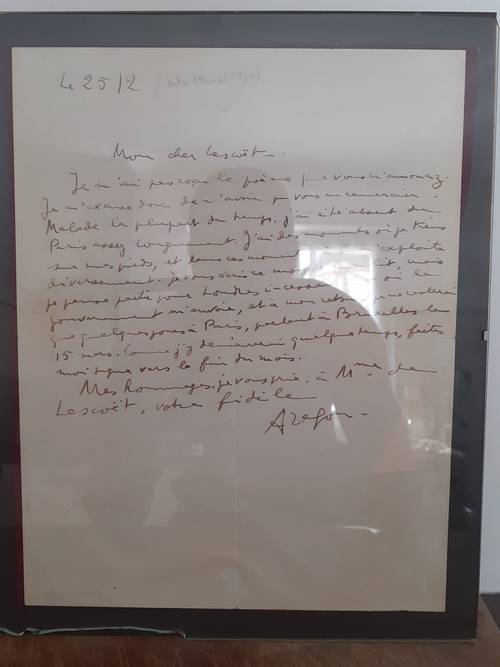 Le 25/2
Mon cher Lescoët,
Je n'ai pas reçu le poème que vous m'annoncez.
Je m'excuse donc de n'avoir pu vous en remercier.
Malade la plupart du temps, j'ai été absent de
Paris assez longuement. J'ai des moments où je tiens
sur mes pieds, et dans ces moments exploite
diversement. Je vous écris ce mot mais
je pense partir pour Londres où le
gouvernement m'envoie, et à mon retour je ne resterai
que quelques jours à Paris, partant à Bruxelles le
15 mars. Comme j'y demeurerai quelque temps, faites
moi signe vers la fin du mois.
Mes hommages, je vous prie, à Mme de
Lescoët, votre fidèle
Aragon